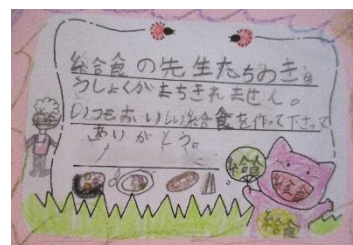 給食の先生たちのきゅ
うしょくがまちきれません。
いつもおいしい給食を作って下さって
ありがとう。
給食
給食
給食